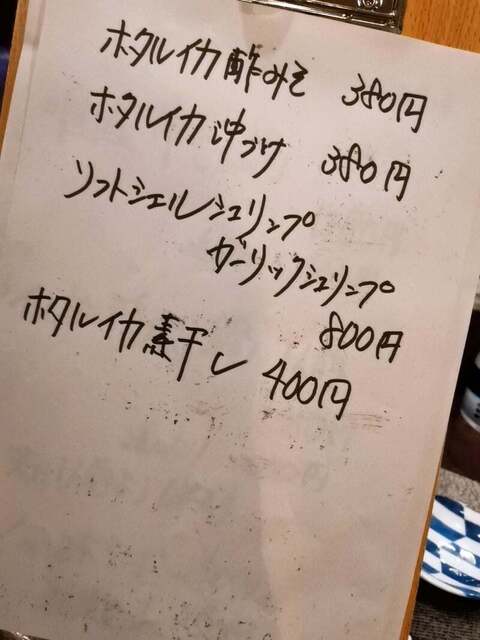 ホタルイカ酢みそ 380円
ホタルイカ沖づけ 380円
ソフトシェルシュリンプ
ガーリックシュリンプ
800円
ホタルイカ素干し 400円